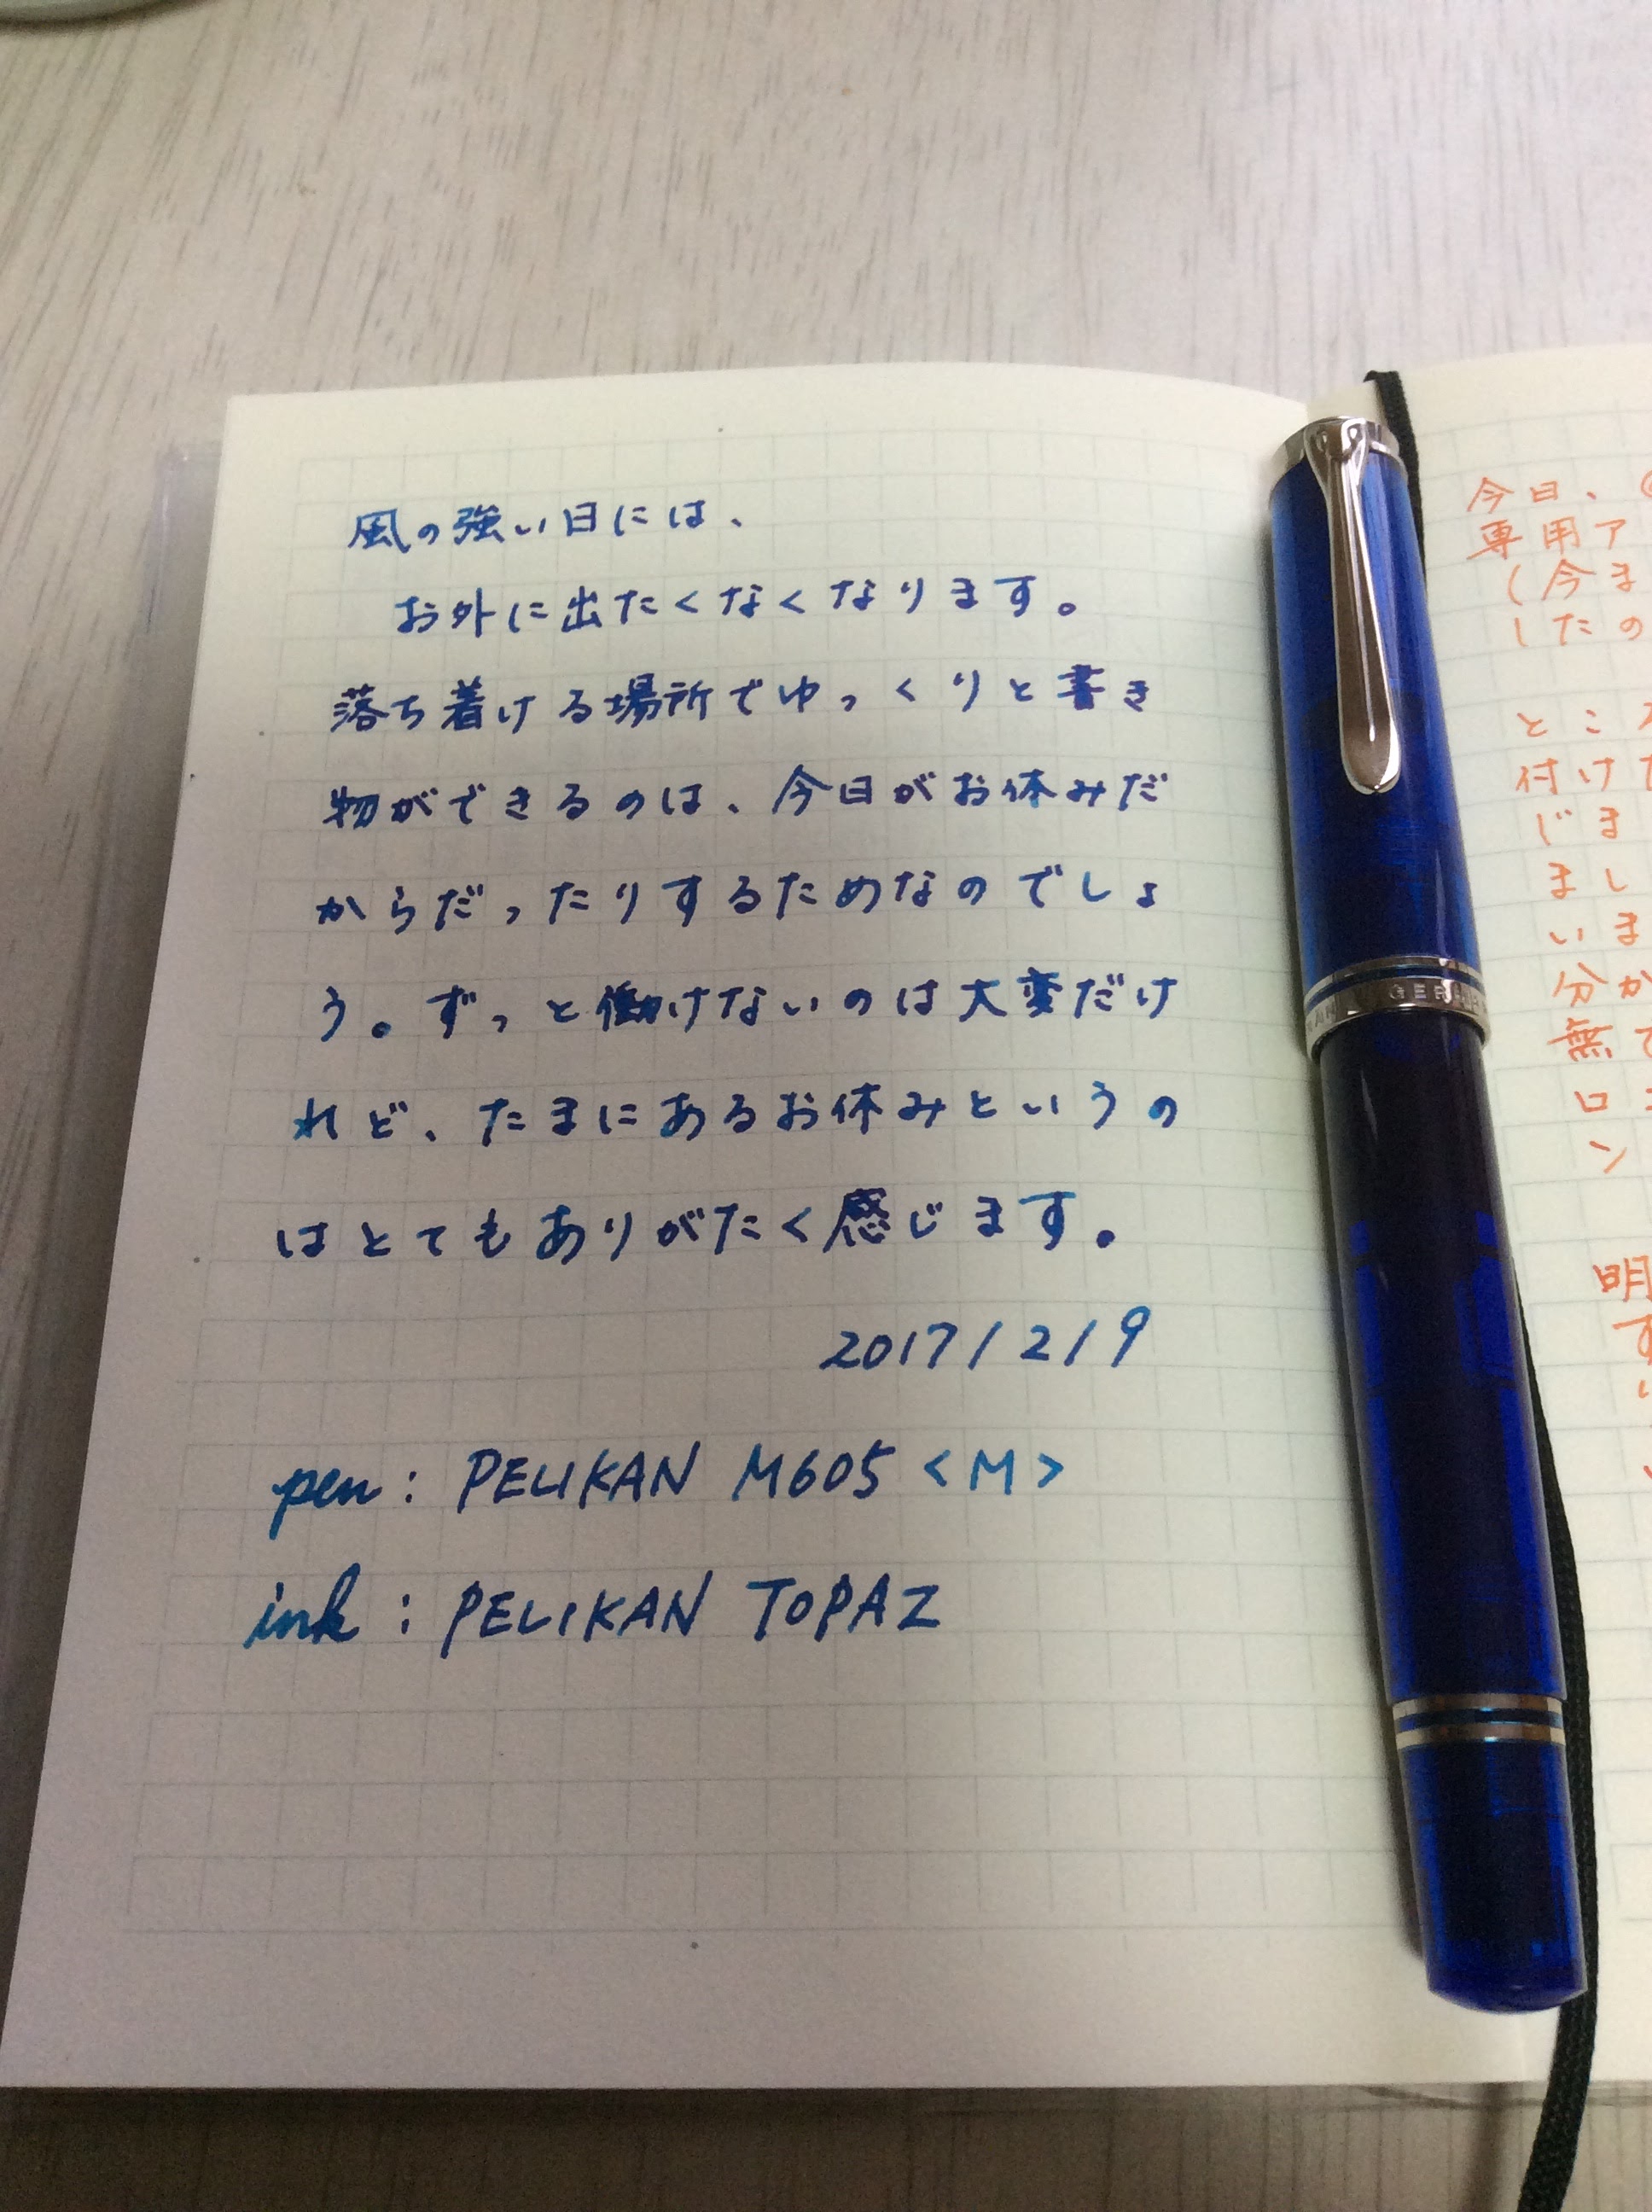 風の強い日には、
お外に出たくなくなります。
落ち着ける場所でゆっくりと書き
物ができるのは、今日がお休みだ
からだったりするためなのでしょ
う。ずっと働けないのは大変だけ
れど、たまにあるお休みというの
はとてもありがたく感じます。
2017/2/9
pen: PELIKAN M605 <M>
ink: PELIKAN TOPAZ
今日、
専用ア
(今ま
したの
ところ
付けた
じま
まし
いま
分か
無で
ロ
ン
明
す